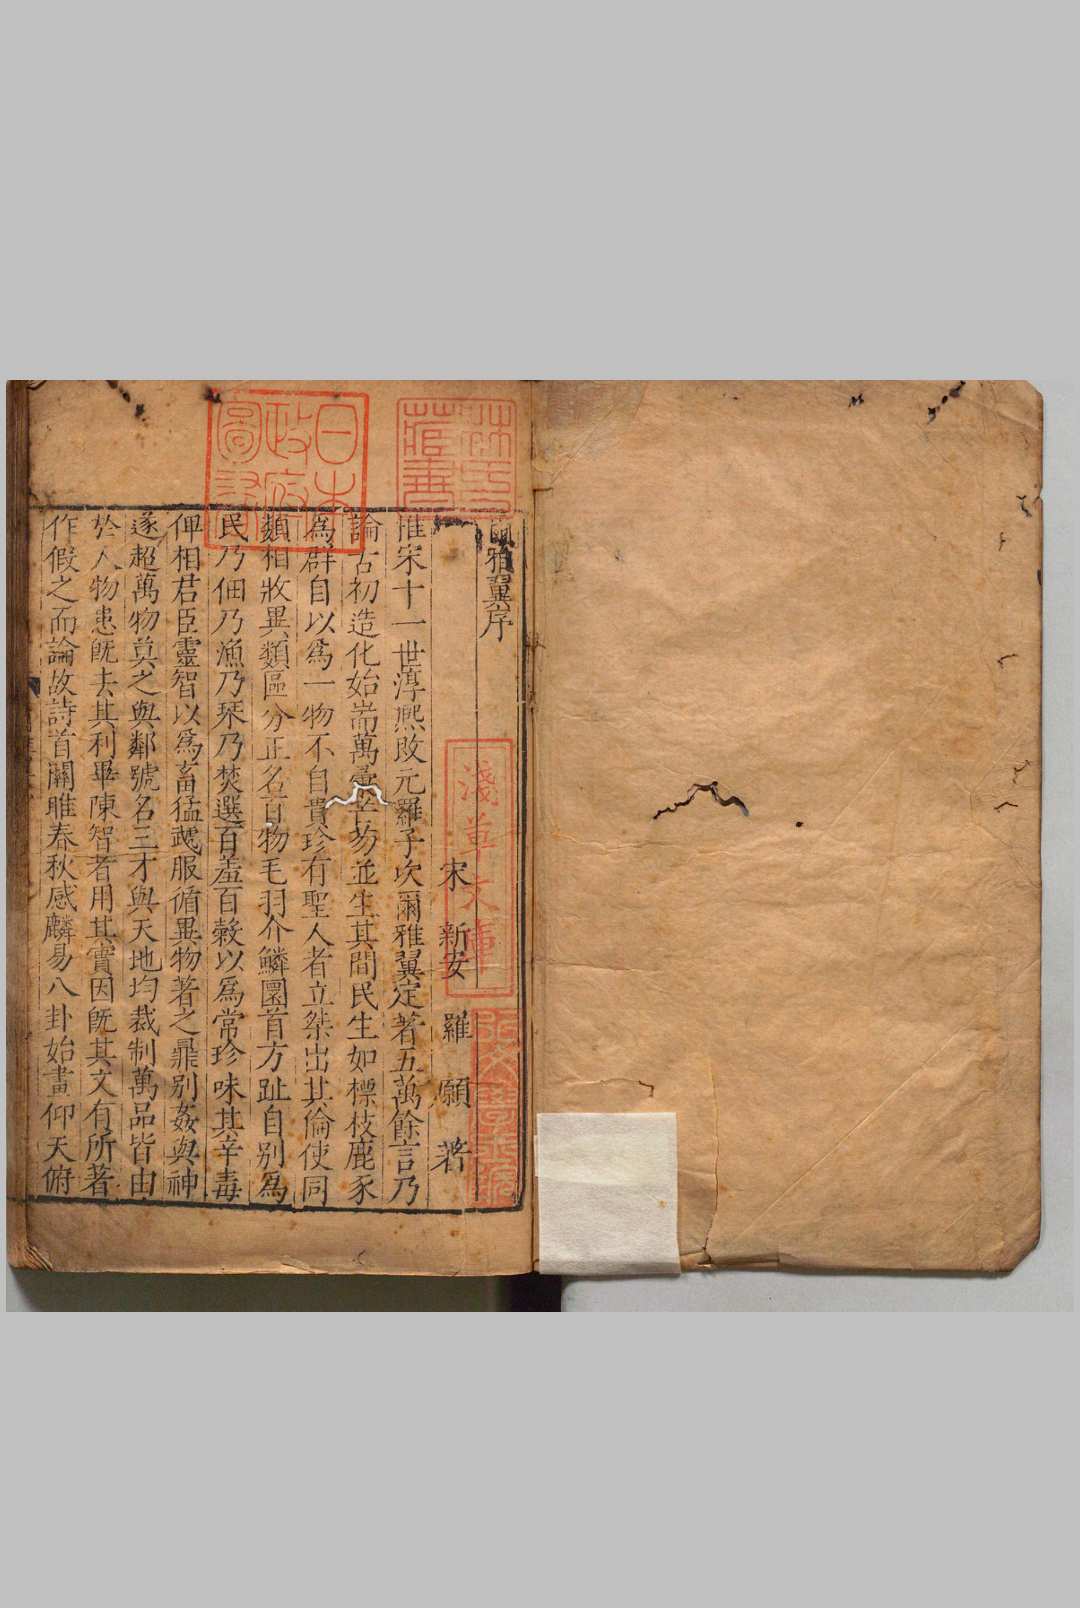 爾雅翼序
宋 新安 羅 願 著
惟宋十一世淳熙改元羅子次爾雅翼定著五萬餘言乃
論古初造化始耑萬彙芊芴並生其間民生如標枝鹿豕
為群自以為一物不自貴珍有聖人者立桀出其倫使同
類相收異類區分正名百物毛羽介鱗圜首方趾自別為
民乃佃乃漁乃琹乃焚選百羞百穀以為常珍味其辛毒
俾相君臣靈智以為畜猛虣服循異物著之鼎別姦與神
遂超萬物莫之與鄰號名三才與天地均裁制萬品皆由
於人物患既去其利畢陳智者用其實因既其文有所著
作假之而論故詩首關雎春秋感麟易八卦始畫仰天俯
日本
政府
圖書
林氏
藏書
淺草文庫